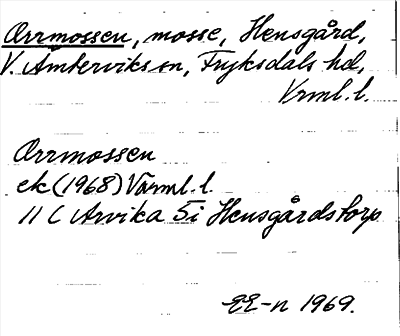 Orrmossen, mosse, Hensgård,
V. Ämterviks sn, Fryksdals hd,
Vrml. l.
Orrmossen
ek (1968) Värml. l.
11 C Arvika 5i Hensgårdstorp
EE-n 1969.